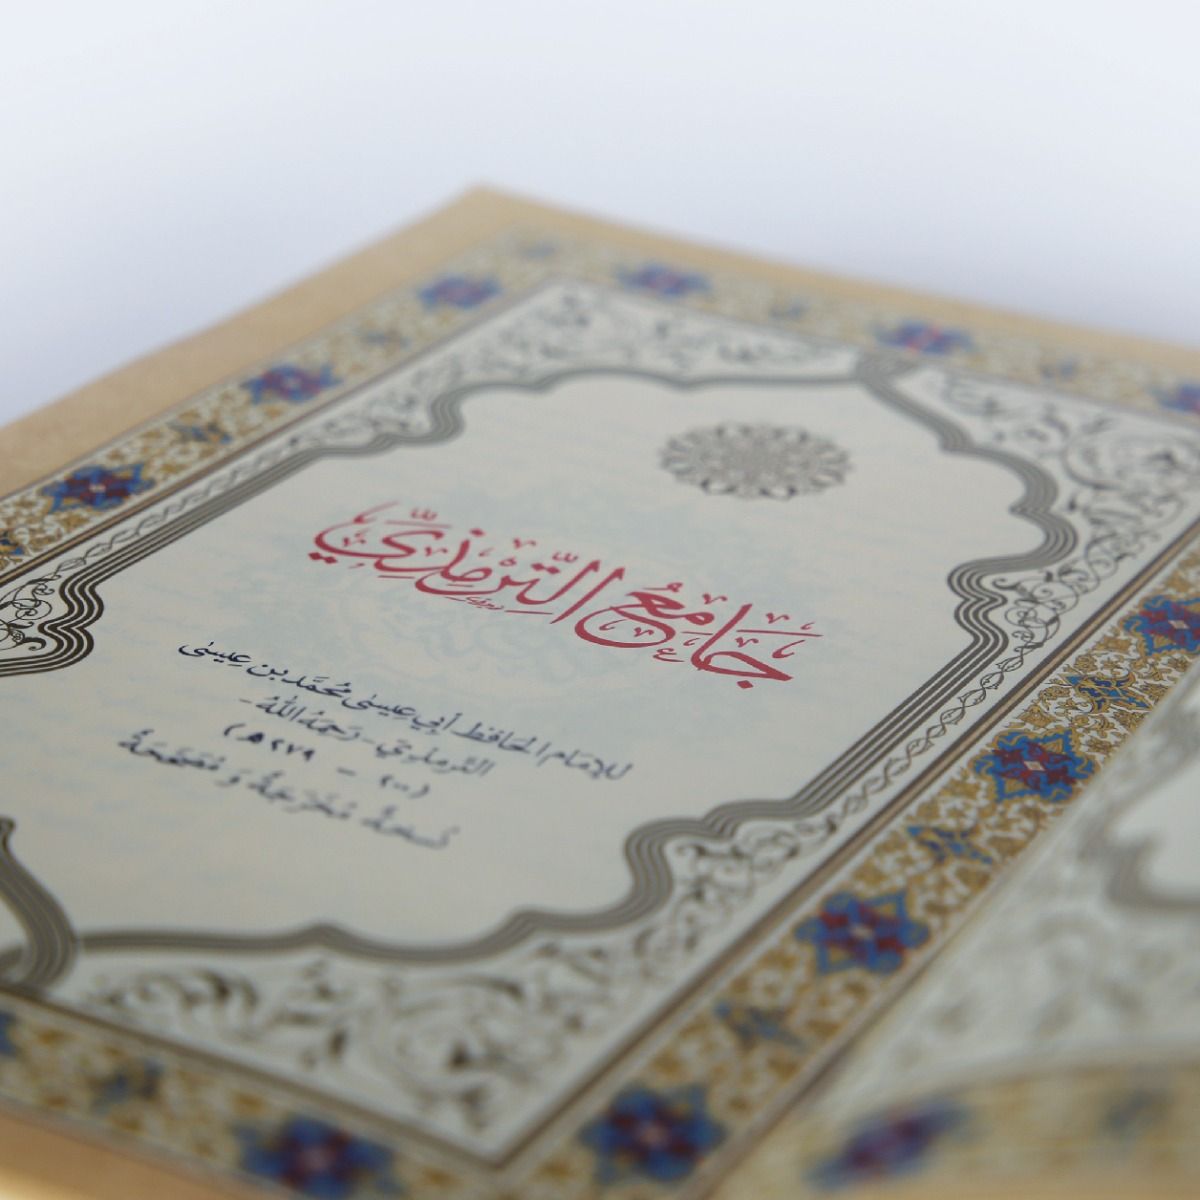 جَامِعُ التِّرْمِذِيِّ
للإمام الحَافظ أبي عِيسىٰ مُحمَّد بن عِيسىٰ
الترمذي - رَحِمَهُ اللهُ -
(٢٠٠ - ٢٧٩ هـ)
نُسخَةٌ مُخَرَّجَةٌ وَ مُصَحَّحَةٌ